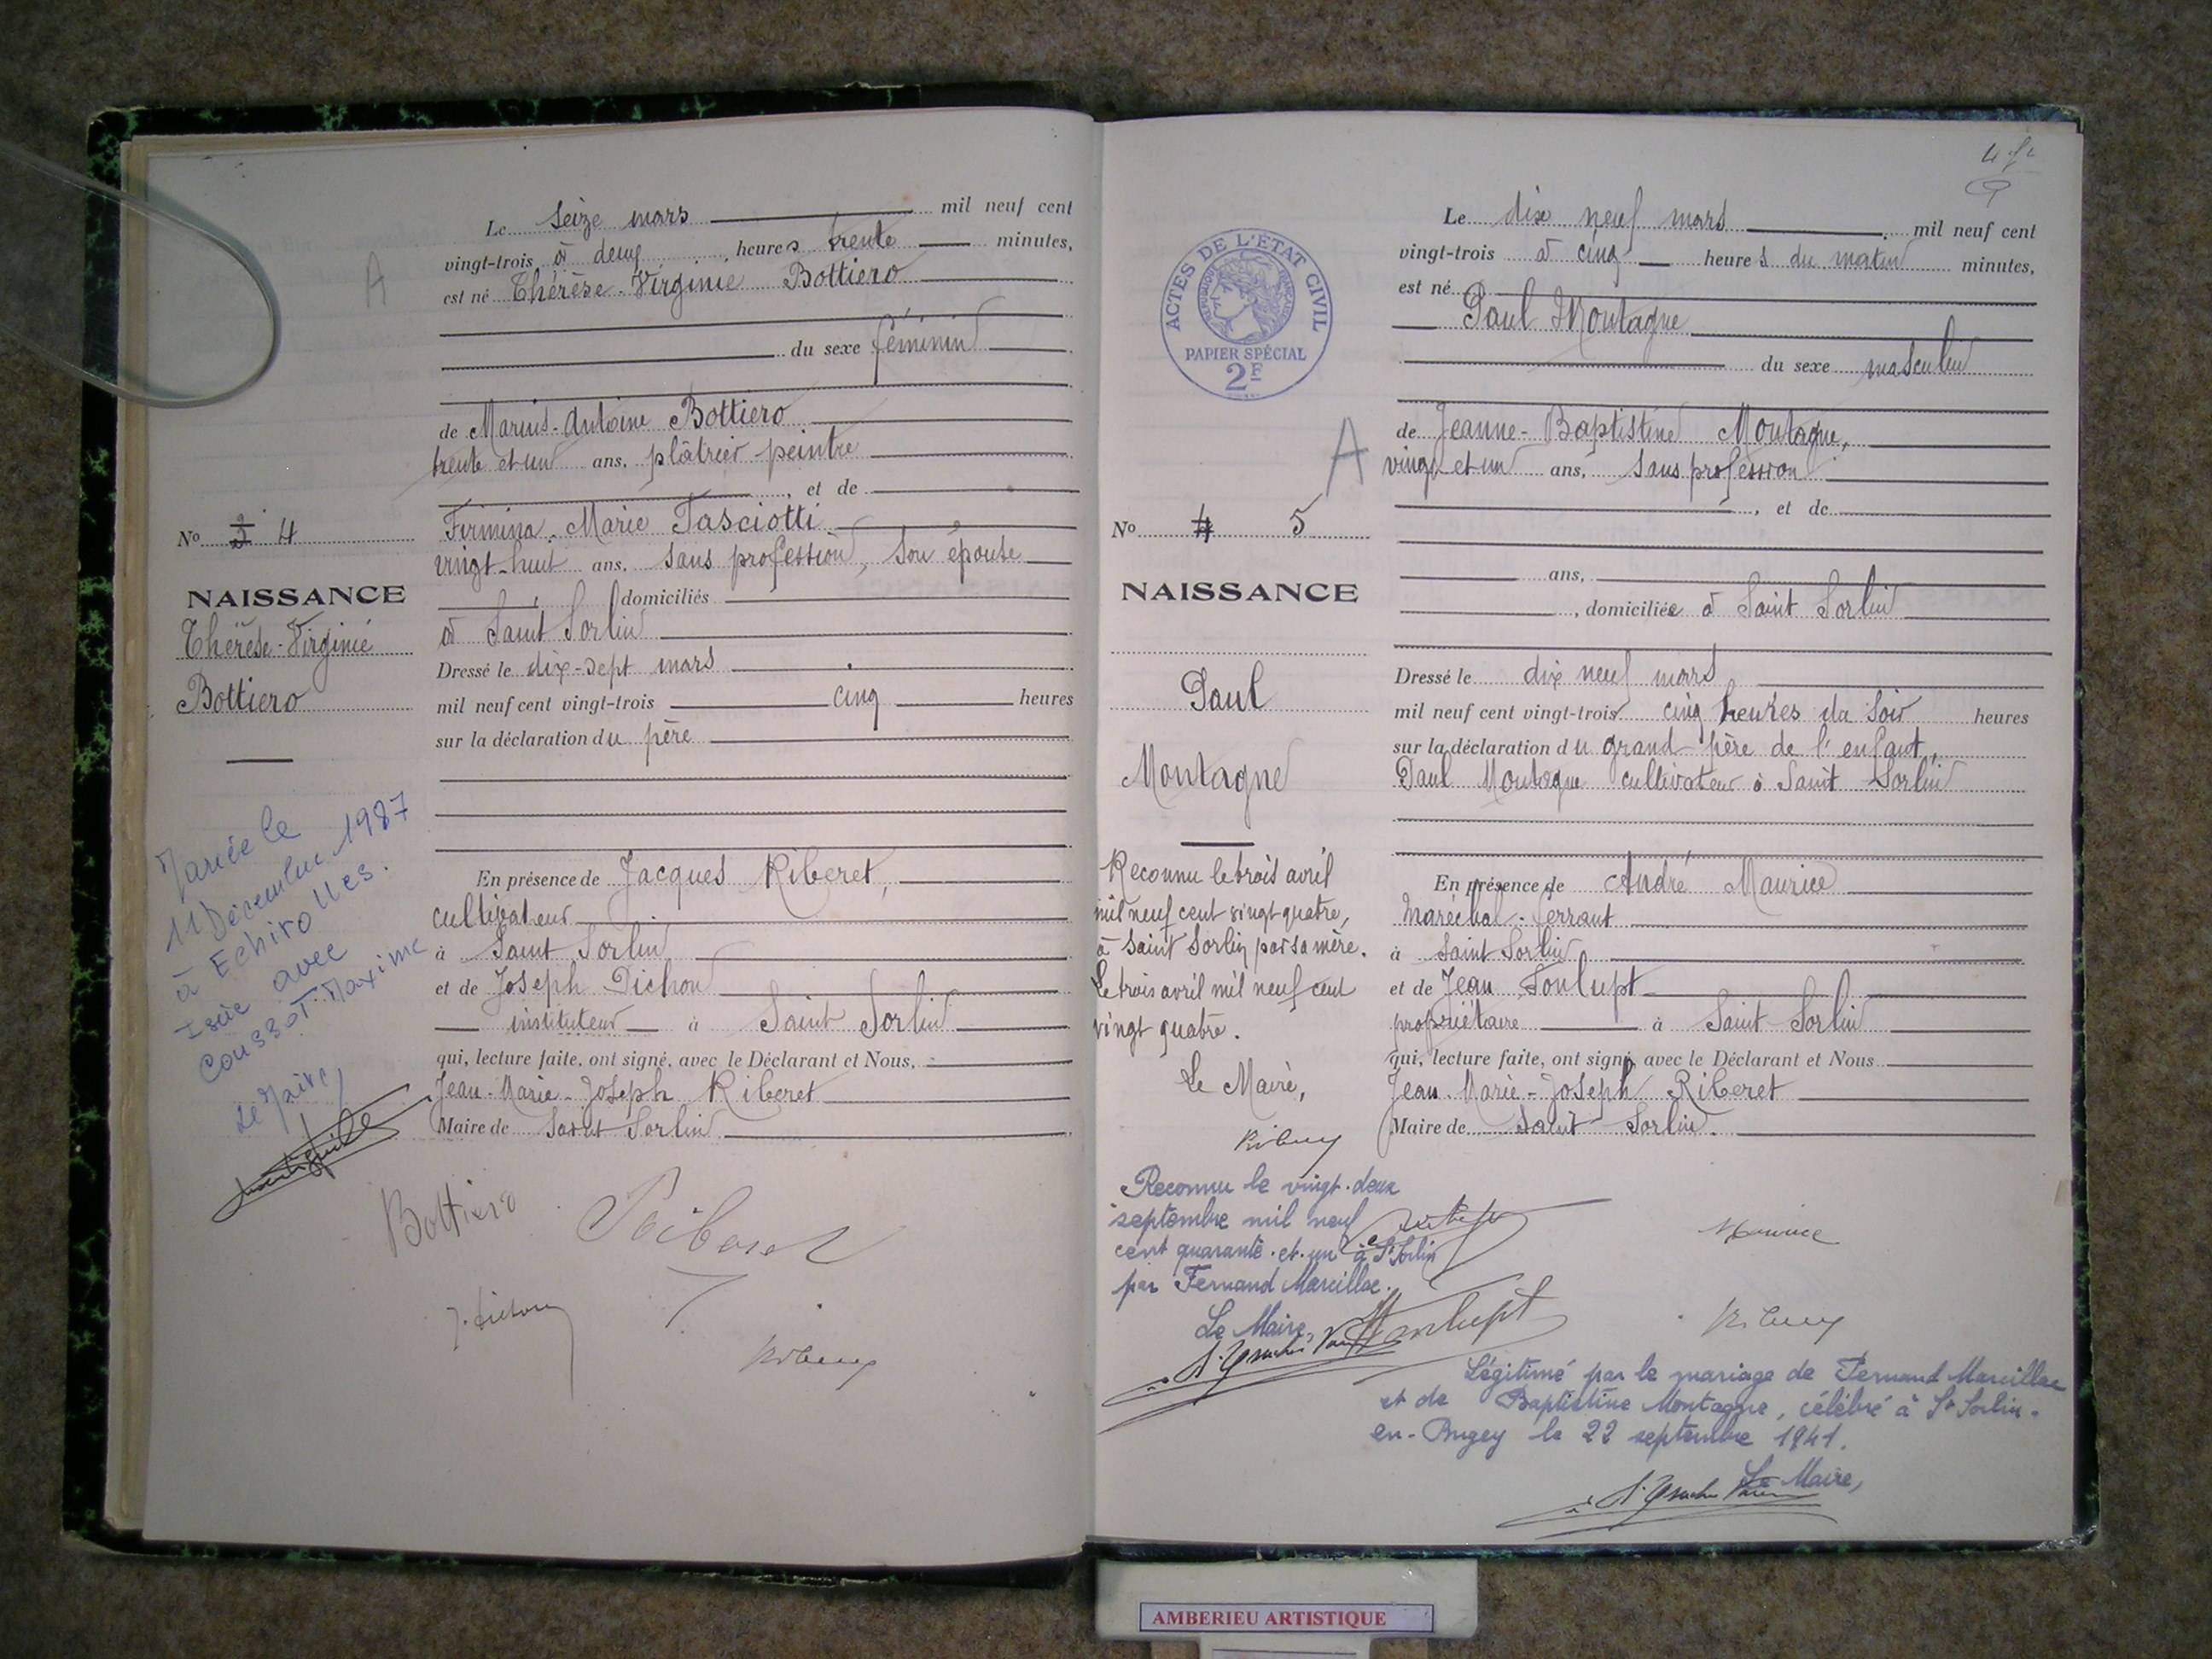 Le seize mars mil neuf cent
vingt-trois à deux heures trente minutes,
est né Thérèse-Virginie Bottiero
A
du sexe féminin
de Marius-Antoine Bottiero
trente et un ans, plâtrier peintre
, et de
Firmina-Marie Tasciotti
vingt-huit ans, sans profession, son épouse
domiciliés
à Saint Sorlin
Dressé le dix-sept mars
mil neuf cent vingt-trois cinq heures
sur la déclaration du père
En présence de Jacques Riberet,
cultivateur
à Saint Sorlin
et de Joseph Dichon
instituteur à Saint Sorlin
qui, lecture faite, ont signé, avec le Déclarant et Nous,
Jean-Marie-Joseph Riberet
Maire de Saint Sorlin
No 4
NAISSANCE
Thérèse-Virginie
Bottiero
Mariée le
11 Décembre 1987
à Echirolles.
Isère avec
Coussot Maxime
Le Maire,
Bottiero
Riberet
ACTES DE L'ÉTAT CIVIL
PAPIER SPÉCIAL
2F
Le dix neuf mars mil neuf cent
vingt-trois à cinq heures du matin minutes,
est né
Paul Montagne
du sexe masculin
A
de Jeanne-Baptistine Montagne,
vingt et un ans, sans profession
, et de
ans,
, domiciliée à Saint Sorlin
Dressé le dix neuf mars
mil neuf cent vingt-trois cinq heures du soir heures
sur la déclaration du grand-père de l'enfant,
Paul Montagne cultivateur à Saint Sorlin
En présence de André Maurice
Maréchal-ferrant
à Saint Sorlin
et de Jean Loulupt
propriétaire à Saint-Sorlin
qui, lecture faite, ont signé, avec le Déclarant et Nous
Jean-Marie-Joseph Riberet
Maire de Saint-Sorlin.
No 4 5
NAISSANCE
Paul
Montagne
Reconnu le trois avril
mil neuf cent vingt quatre,
à Saint Sorlin par sa mère.
Le trois avril mil neuf cent
vingt quatre.
Le Maire,
Reconnu le vingt-deux
septembre mil neuf
cent quarante-et-un à St Sorlin
par Fernand Marcillac.
Le Maire,
Maurice
Légitimé par le mariage de Fernand Marcillac
et de Baptistine Montagne, célébré à St Sorlin-
en-Bugey le 22 septembre 1941.
Le Maire,
AMBERIEU ARTISTIQUE